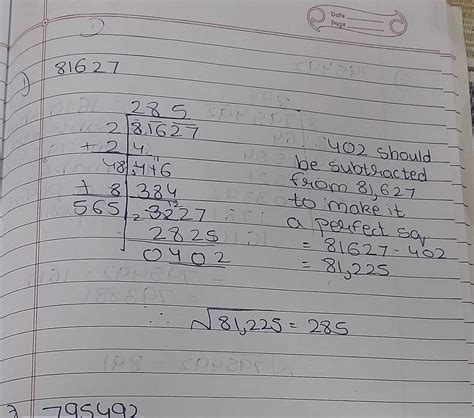 Date
Page
1)
1) 81627
285
2 | 81627
+2 | 4
48 | 416
+ 8 | 384
565 | 3227
2825
0402
402 should
be subtracted
from 81,627
to make it
a perfect sq.
= 81627 - 402
= 81,225
∴ √81,225 = 285
2 795492